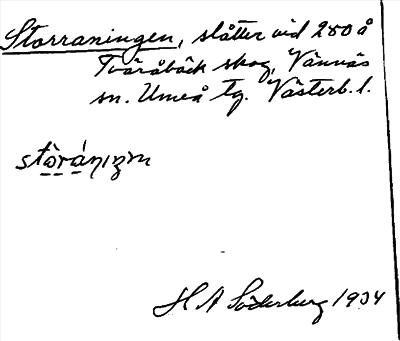 Storraningen, slåtter vid 280 å
Tväråbäck skog, Vännäs
sn. Umeå tg. Västerb. l.
stòránɩŋm
H A Söderberg 1934